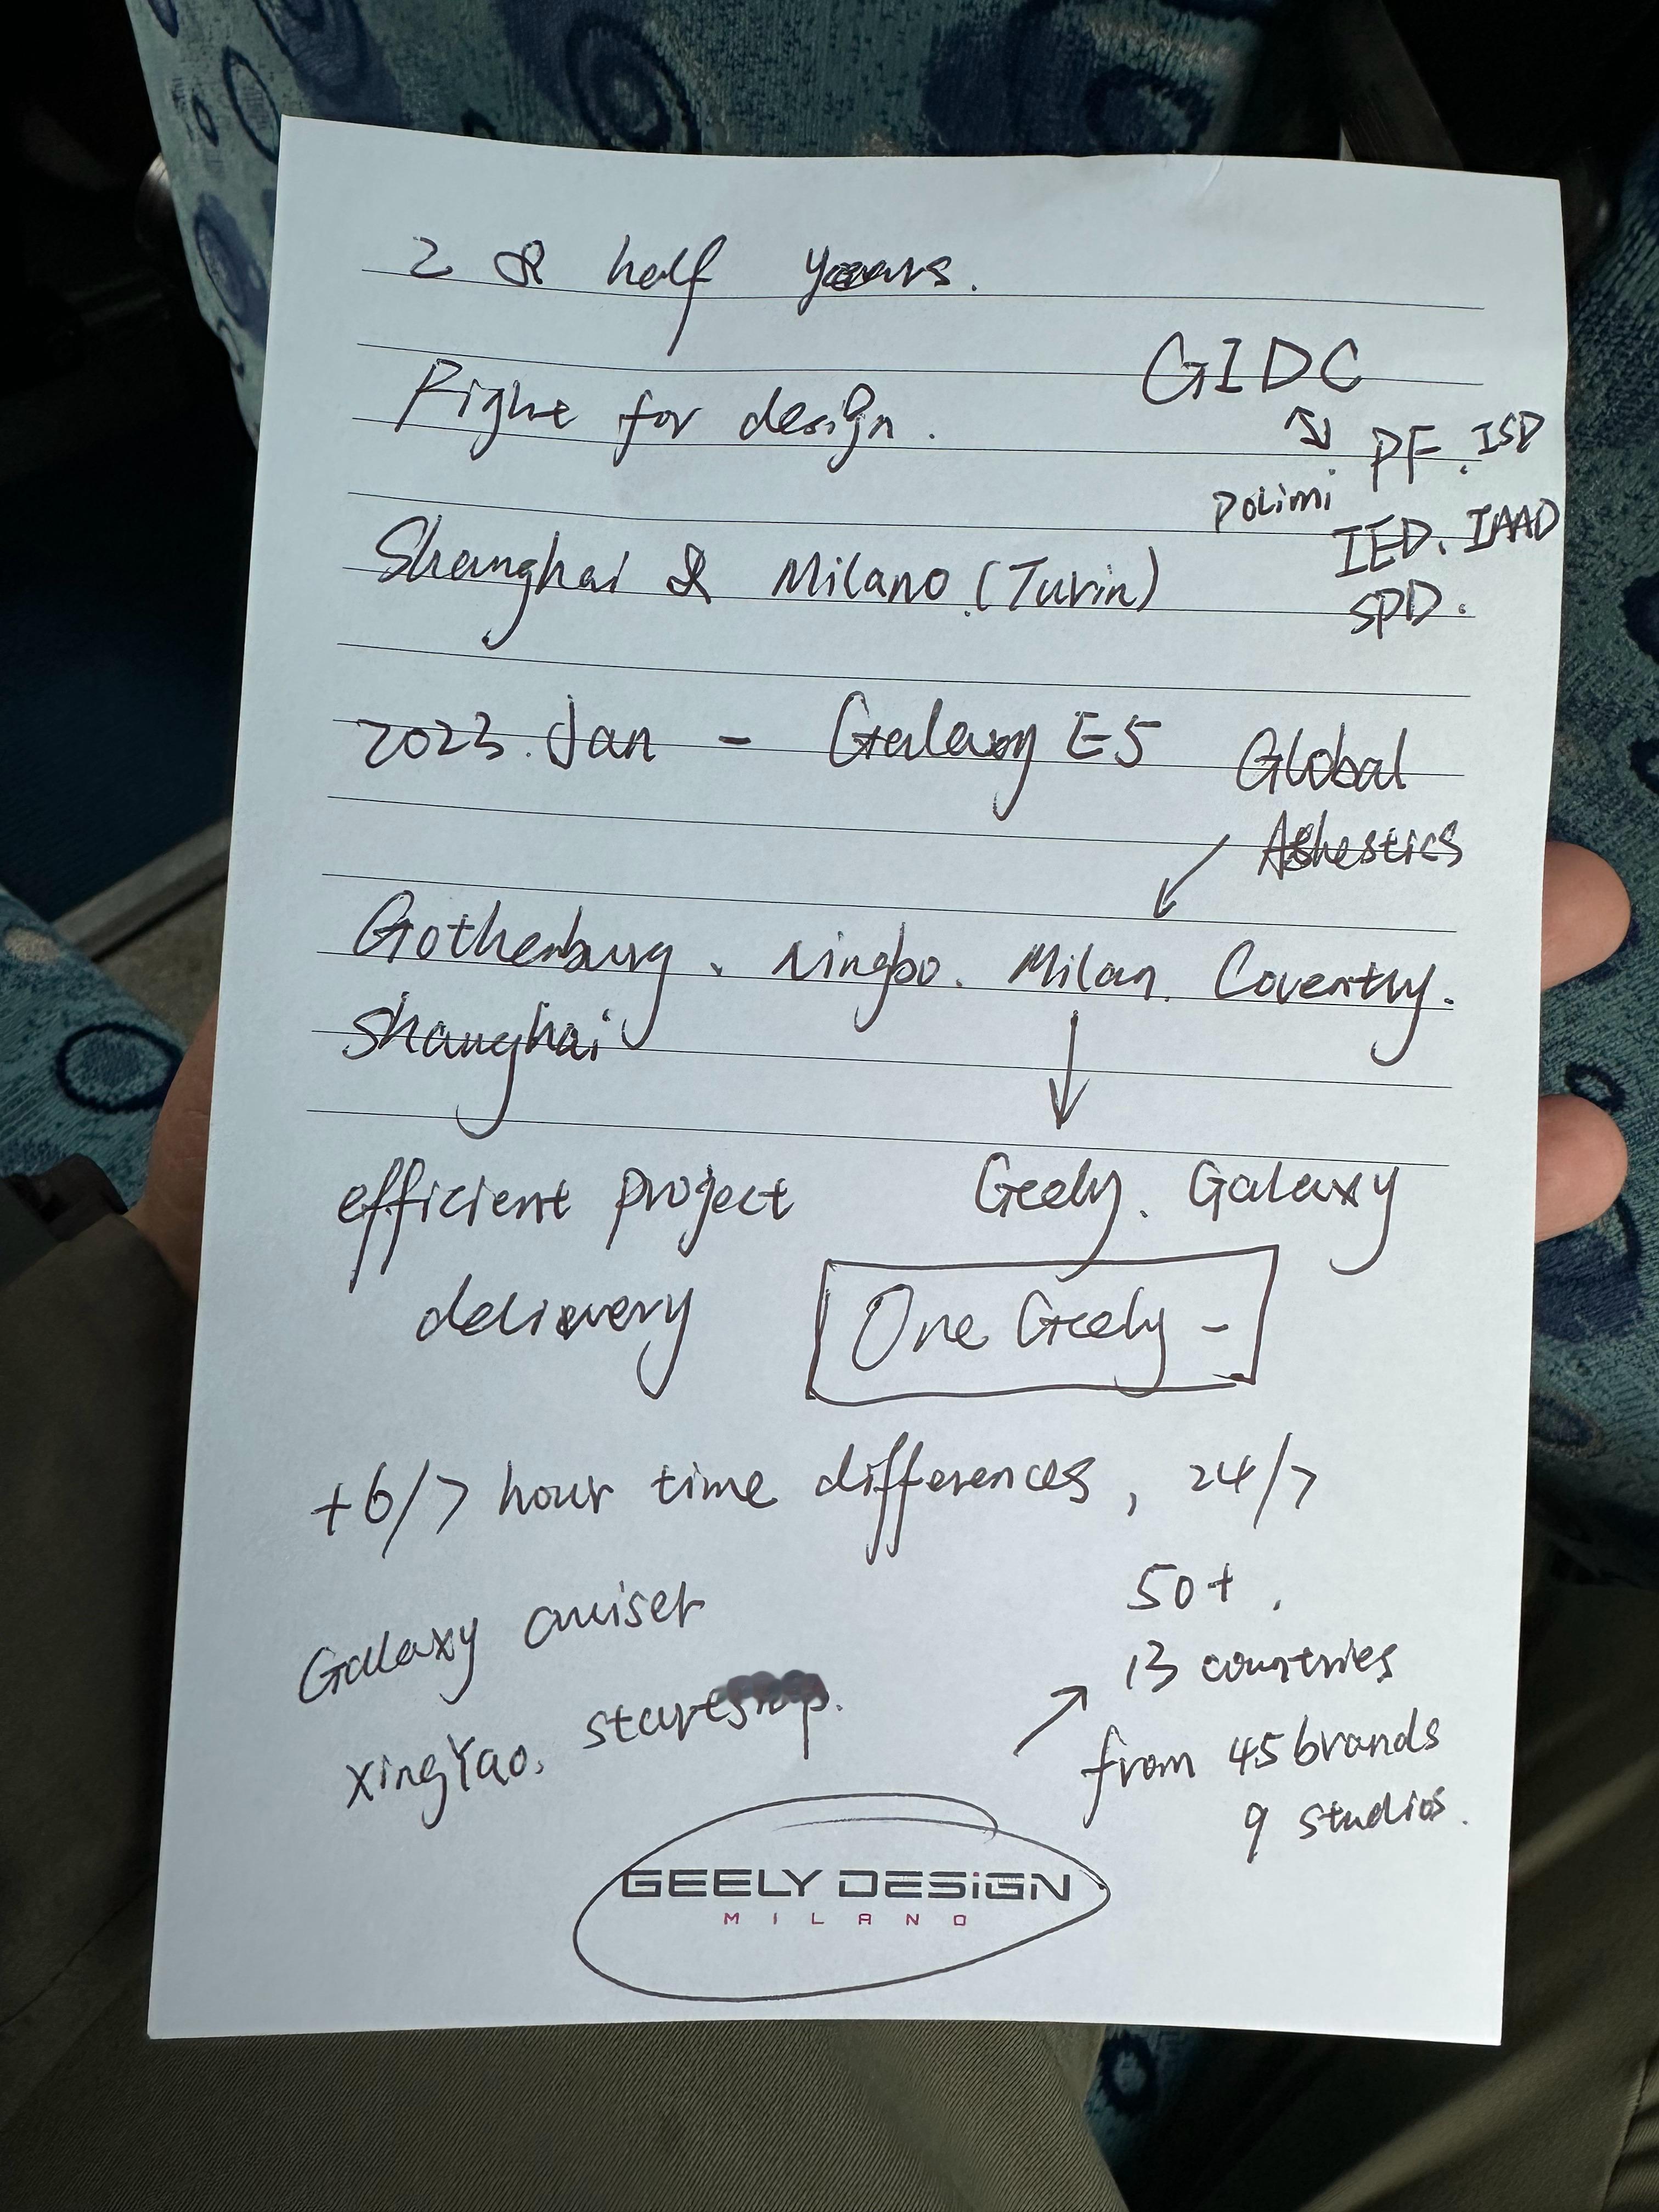 2 & half years.
Fight for design.
GIDC
PF. ISD
Polimi
IED. IAAD
SPD.
Shanghai & Milano (Turin)
2023. Jan - Galaxy E5
Global
Ashestics
Gothenburg. Ningbo. Milan. Coventry.
Shanghai
efficient project
delivery
Geely. Galaxy
One Geely -
+6/7 hour time differences, 24/7
50+.
13 countries
from 45 brands
9 studios.
Galaxy cruiser
XingYao.
GEELY DESIGN
MILANO